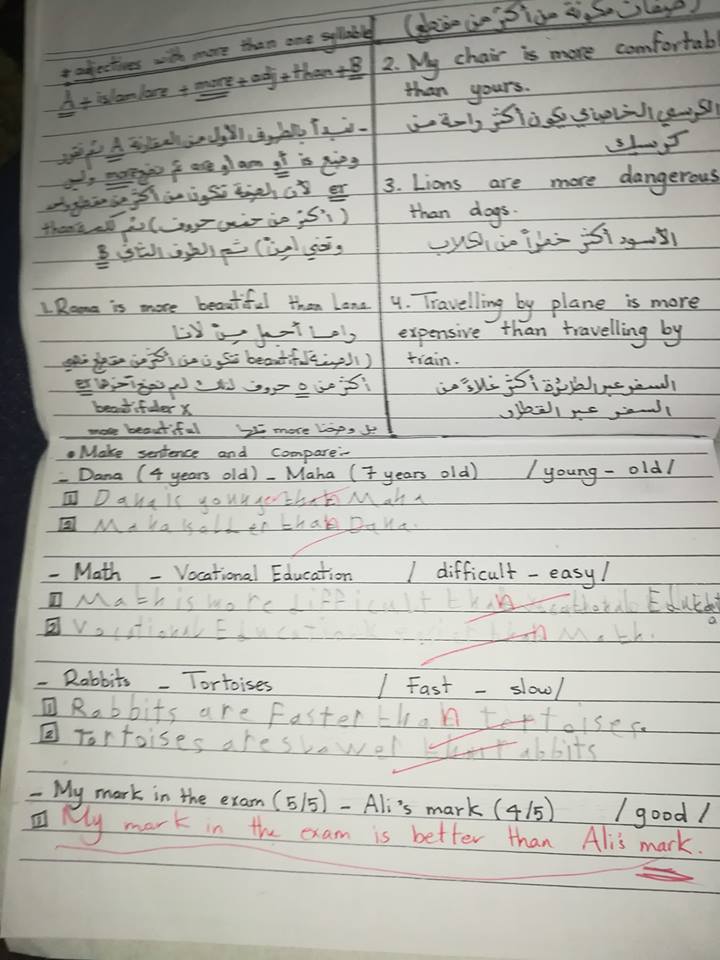 (صفات مكونة من أكثر من مقطع)
* adjectives with more than one syllable
A + is/am/are + more + adj + than + B
- نبدأ بالطرف الأول من المقارنة A ثم نقرر
وضع is أو am أو are ثم نضع more وليس
er لأن الصفة تتكون من أكثر من مقطع واحد
(أكثر من خمس حروف) ثم كلمة than
وتعني (من) ثم الطرف الثاني B
1. Rama is more beautiful than Lana
راما أجمل من لانا
(الصفة beautiful تتكون من أكثر من مقطع فهي
أكثر من 5 حروف لذلك لم نضع آخرها er
beautifuler x
more beautiful بل وضعنا more قبلها
2. My chair is more comfortabl
than yours.
الكرسي الخاص بي يكون أكثر راحة من
كرسيك
3. Lions are more dangerous
than dogs.
الأسود أكثر خطراً من الكلاب
4. Travelling by plane is more
expensive than travelling by
train.
السفر عبر الطائرة أكثر غلاءً من
السفر عبر القطار
• Make sentence and Compare:-
- Dana (4 years old) - Maha (7 years old) / young - old /
1 Dana is younger than Maha
2 Maha is older than Dana.
- Math - Vocational Education / difficult - easy /
1 Math is more difficult than vocational Educat
2 Vocational Education than Math.
- Rabbits - Tortoises / Fast - slow /
1 Rabbits are Faster than tortoises.
2 Tortoises are slower than rabbits
- My mark in the exam (5/5) - Ali's mark (4/5) / good /
1 My mark in the exam is better than Ali's mark.